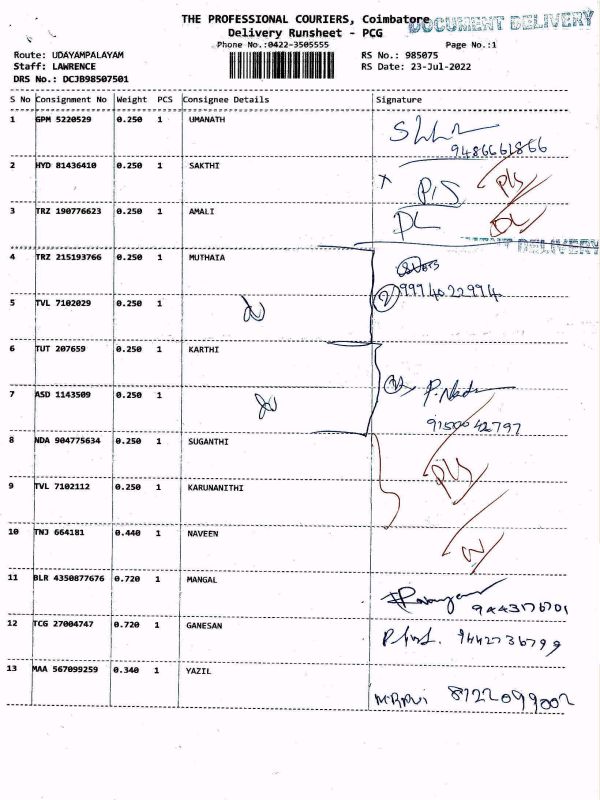 THE PROFESSIONAL COURIERS, Coimbatore
DOCUMENT DELIVERY
Delivery Runsheet - PCG
Phone No.:0422-3505555
Page No.:1
Route: UDAYAMPALAYAM
RS No.: 985075
Staff: LAWRENCE
RS Date: 23-Jul-2022
DRS No.: DCJB98507501
S No Consignment No Weight PCS Consignee Details Signature
1 GPM 5220529 0.250 1 UMANATH
9486661866
2 HYD 81436410 0.250 1 SAKTHI
P/S P/S
3 TRZ 190776623 0.250 1 AMALI DL DL
DELIVERY
4 TRZ 215193766 0.250 1 MUTHAIA
2 9994022994
5 TVL 7102029 0.250 1
6 TUT 207659 0.250 1 KARTHI
7 ASD 1143509 0.250 1
9150042797
8 NDA 904775634 0.250 1 SUGANTHI
9 TVL 7102112 0.250 1 KARUNANITHI
10 TNJ 664181 0.440 1 NAVEEN
11 BLR 4350877676 0.720 1 MANGAL
9443176701
12 TCG 27004747 0.720 1 GANESAN 9442736799
13 MAA 567099259 0.340 1 YAZIL
8122099002